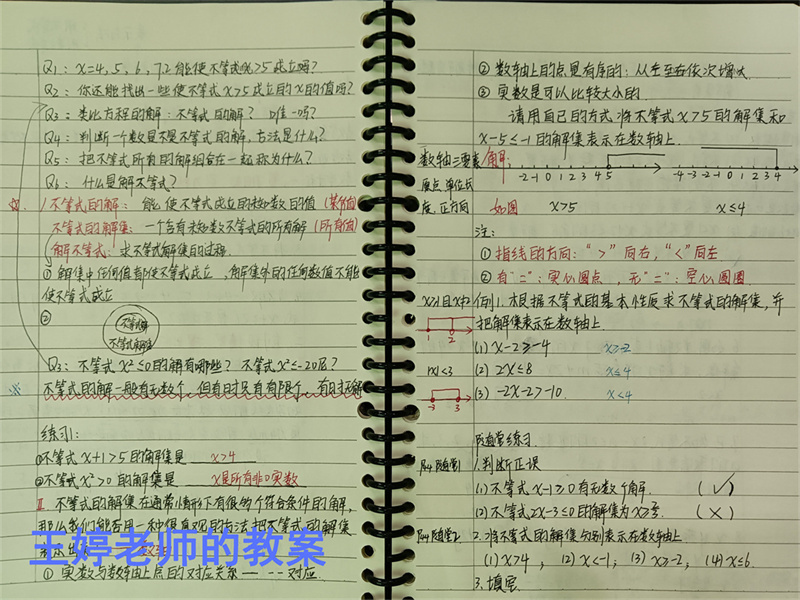 Q1: x=4, 5, 6, 7.2 能使不等式 x>5 成立吗?
Q2: 你还能找出一些使不等式 x>5 成立的 x 的值吗?
Q3: 类比方程的解:不等式的解? 唯一吗?
Q4: 判断一个数是不是不等式的解,方法是什么?
Q5: 把不等式所有的解组合在一起称为什么?
Q6: 什么是解不等式?
1 不等式的解: 能使不等式成立的未知数的值 (某个值)
不等式的解集: 一个含有未知数不等式的所有解 (所有值)
解不等式: 求不等式解集的过程.
① 解集中任何值都使不等式成立,解集外的任何数值不能
使不等式成立
②
不等式解
不等式解集
Q3: 不等式 x²≤0 的解有哪些? 不等式 x²≤-20呢?
※ 不等式的解一般有无数个,但有时只有有限个,有时无解
练习1:
①不等式 x+1>5 的解集是 x>4
②不等式 x²>0 的解集是 x是所有非0实数
Ⅱ. 不等式的解集在通常情形下有很多个符合条件的解,
那么我们能否用一种 的方法把不等式的解集
王婷老师的教案
① 实数与数轴上点的对应关系 — 一一对应.
② 数轴上的点是有序的: 从左至右依次增大.
③ 实数是可以比较大小的.
请用自己的方式将不等式 x>5 的解集和
x-5≤-1 的解集表示在数轴上.
数轴三要素
原点、单位长
度、正方向
解:
-2 -1 0 1 2 3 4 5
-4 -3 -2 -1 0 1 2 3 4
如图 x>5 x≤4
注:
① 指线的方向: “>”向右, “<”向左
② 有“=”: 实心圆点, 无“=”: 空心圆圈
例1. 根据不等式的基本性质求不等式的解集,并
把解集表示在数轴上.
1 2
(1) x-2≥-4 x≥-2
|x|<3
(2) 2x≤8 x≤4
-3 3
(3) -2x-2>-10. x<4
随堂练习.
P44 随堂1
1. 判断正误
(1) 不等式 x-1≥0 有无数个解. (✓)
(2) 不等式 2x-3≤0 的解集为 (×)
P44 随堂2
2. 将不等式的解集分别表示在数轴上
(1) x>4, (2) x<-1, (3) x≥-2, (4) x≤6.
3. 填空.